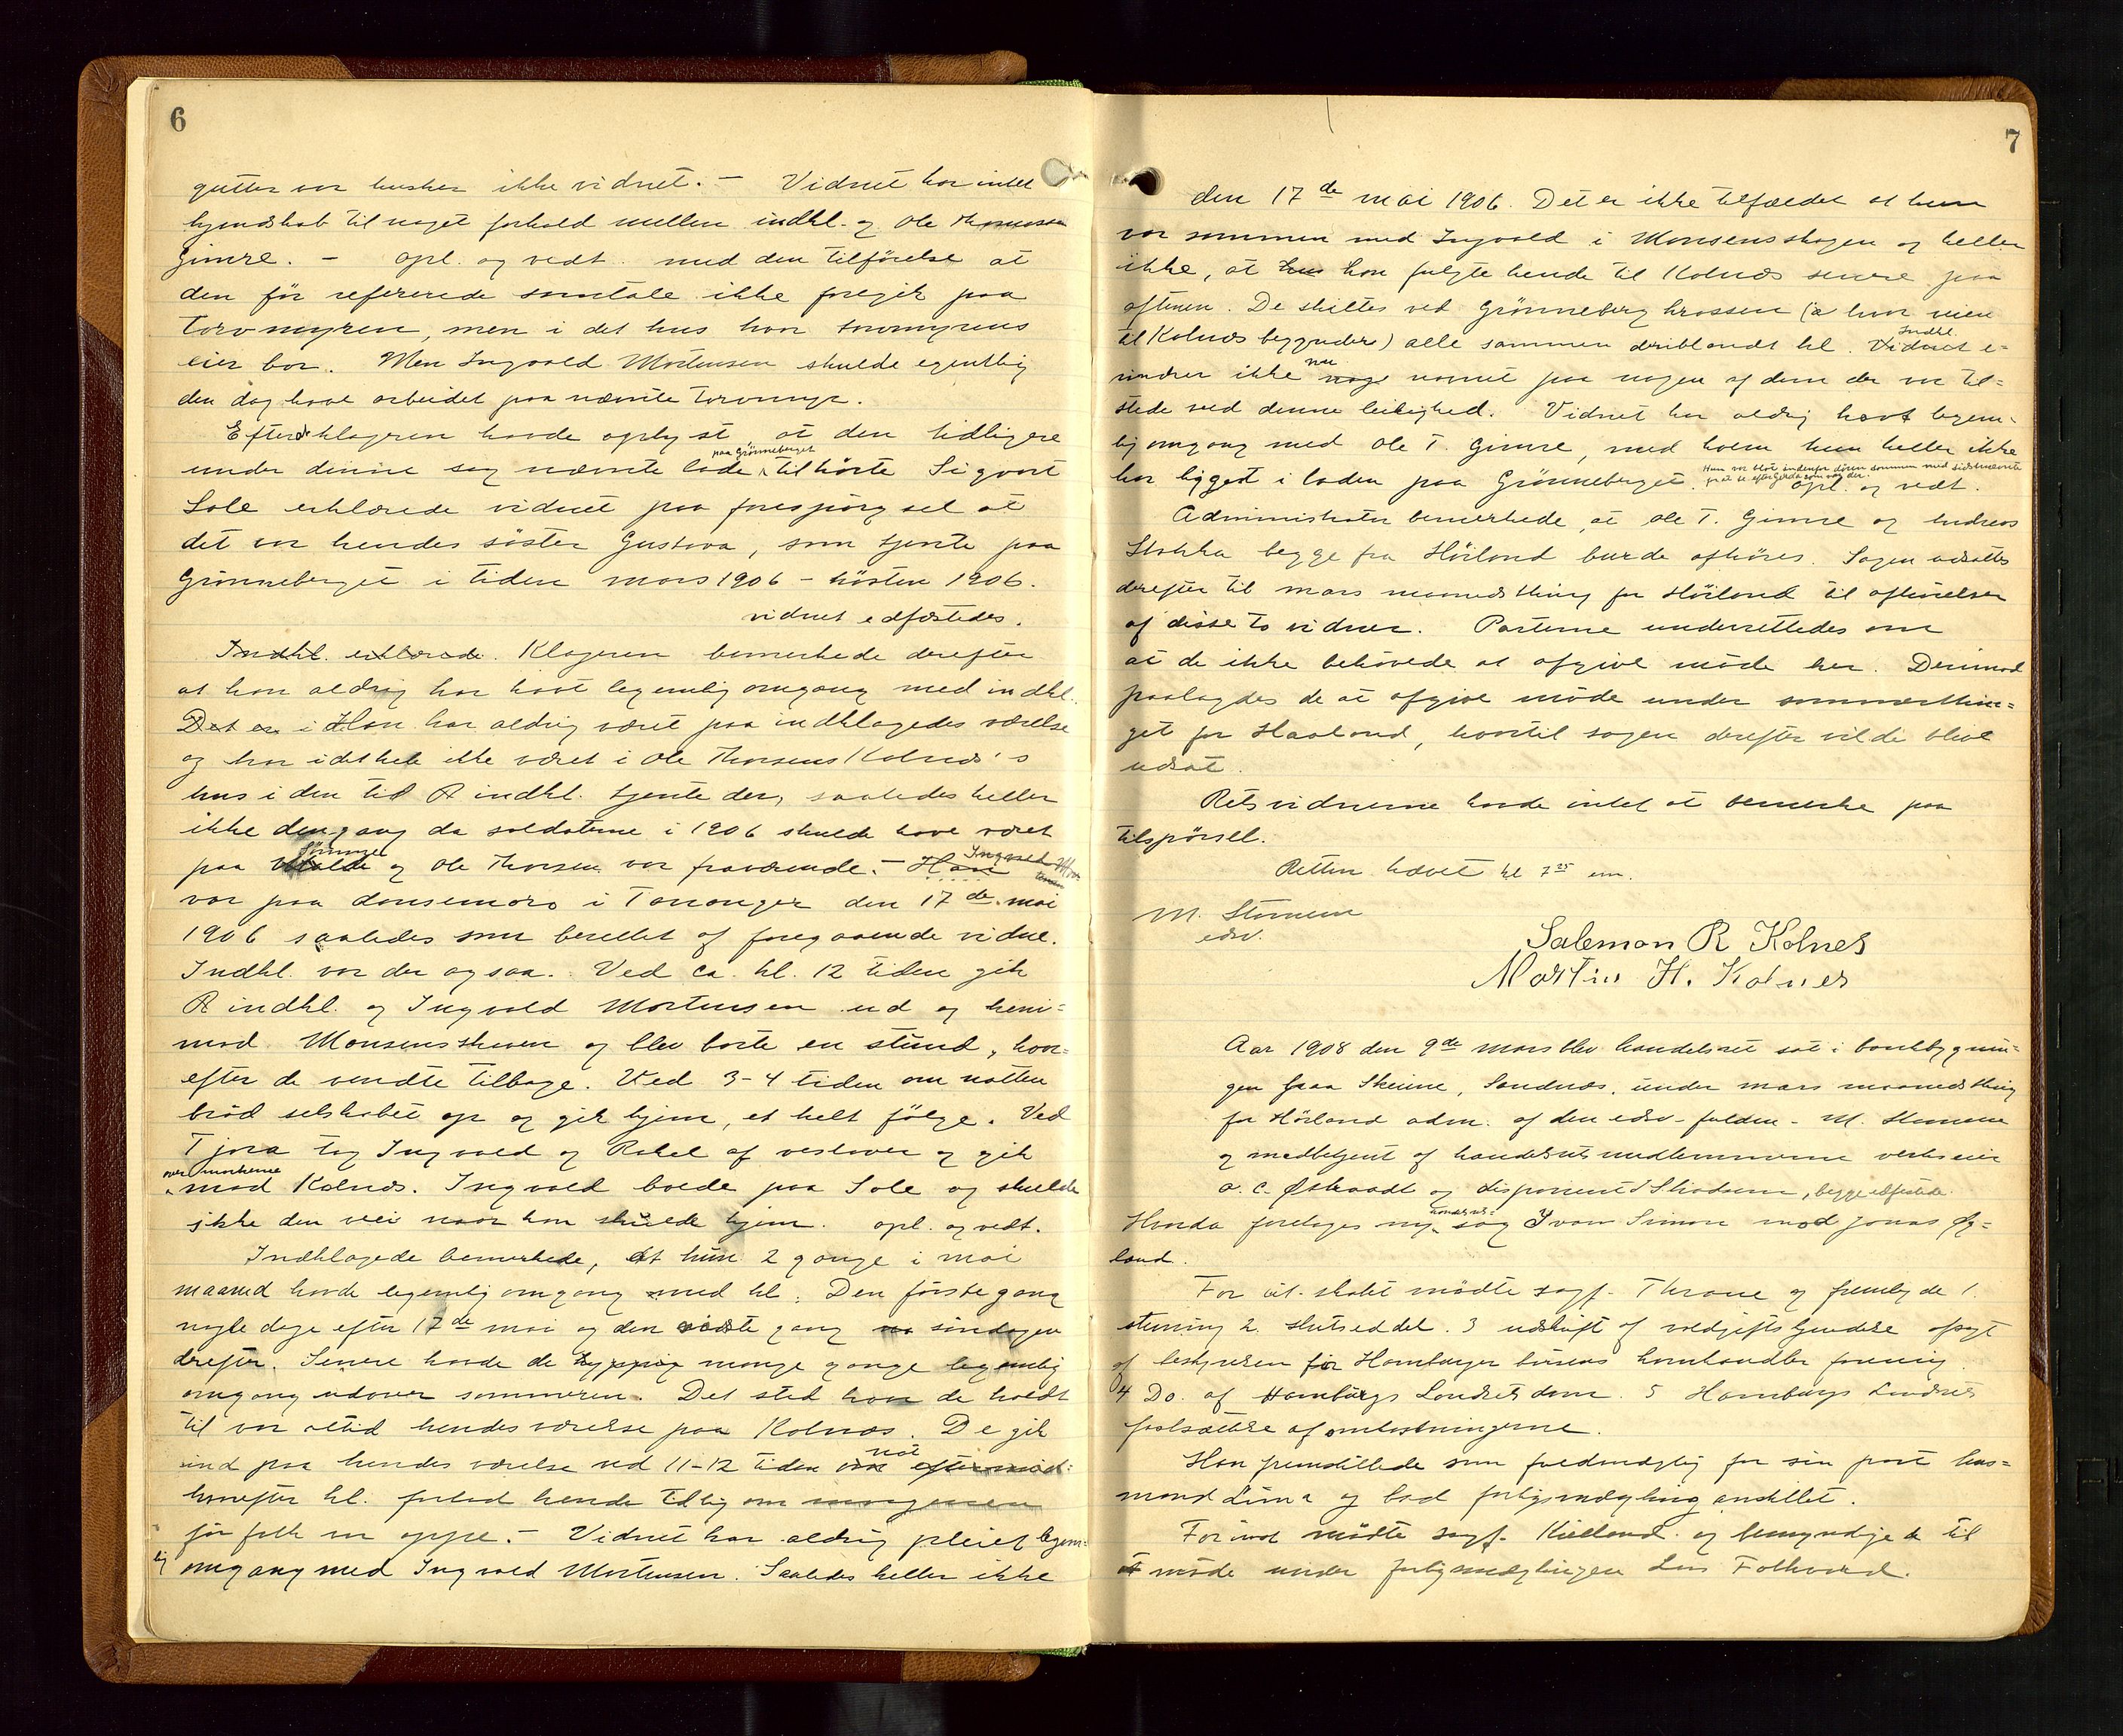 6
gutter var husker ikke vidnet. - Vidnet har intet
kjendskab til noget forhold mellem indkl. og Ole Thomassen
Gimre. - Opl. og vedt. med den tilförelse at
den för refererede samtale ikke foregik paa
Torvmyren, men i det hus hvor torvmyrens
eier bor. Men Ingvald Mortensen skulde egentlig
den dag have arbeidet paa nævnte torvmyr.
Efterat klageren havde oplyst, at den tidligere
under denne sag nævnte lade paa Grönneberget tilhörte Sigvart
Sole erklærede vidnet paa forespörgsel at
det var hendes söster Gustava, som tjente paa
Grönneberget i tiden mars 1906 - hösten 1906.
vidnet edfæstedes.
Indkl. erklærede. Klageren bemerkede derefter
at han aldrig har havt legemlig omgang med indkl.
Det er i Han har aldrig været paa indklagedes værelse
og har idethele ikke været i Ole Thorsens Kolnæs's
hus i den tid R indkl. tjente der, saaledes heller
ikke dengang da soldaterne i 1906 skulde have været
paa og Ole Thorsen var fraværende. - Han Ingvald Mortensen
var paa dansemoro i Tananger den 17de mai
1906 saaledes som berettet af foregaaende vidne.
Indkl. var der ogsaa. Ved ca. kl. 12 tiden gik
R indkl. og Ingvald Mortensen ud og heni-
mod Monsensskoven og blev borte en stund, hvor-
efter de vendte tilbage. Ved 3-4 tiden om natten
bröd selskabet op og gik hjem, et helt fölge. Ved
Tjora tog Ingvald og Rakel af vestover og gik
over markerne mod Kolnæs. Ingvald boede paa Sole og skulde
ikke den vei naar han skulde hjem. opl. og vedt.
Indklagede bemerkede, at hun 2 gange i mai
maaned havde legemlig omgang med kl. Den förste gang
nogle dage efter 17de mai og den sidste gang söndagen
drefter. Senere havde de mange gange legemlig
omgang udover sommeren. Det sted hvor de holdt
til var altid hendes værelse paa Kolnæs. De gik
ind paa hendes værelse ved 11-12 tiden nat
hvorefter kl. forlod hende tidlig om morgenen
för folk var oppe. - Vidnet har aldrig pleiet legem-
lig omgang med Ingvald Mortensen. Saaledes heller ikke
7
den 17de mai 1906. Det er ikke tilfældet at hun
var sammen med Ingvald i Monsensskogen og heller
ikke, at han fulgte hende til Kolnæs senere paa
aftenen. De skiltes ved Grönneberg krossen (a: hvor veien
til Kolnæs begynder) alle sammen deriblandt kl. Vidnet Indkl. e-
rindrer ikke nu navnet paa nogen af dem der var til-
stede ved denne leilighed. Vidnet har aldrig havt legem-
lig omgang med Ole T. Gimre, med hvem hun heller ikke
har ligget i laden paa Grönneberget. Hun var blot indenfor dören sammen med sidstnævnte for at se efter Gerda som var der. Opl. og vedt.
Administrator bemerkede, at Ole T. Gimre og Andreas
Stokka begge fra Höiland burde afhöres. Sagen udsattes
derefter til mars maanedsthing for Höiland til afhörelse
af disse to vidner. Parterne underrettedes om
at de ikke behövede at afgive möde her. Derimod
paalagdes de at afgive möde under sommerthin-
get for Haaland, hvortil sagen derefter vilde blive
udsat.
Retsvidnerne havde intet at bemerke paa
tilspörsel.
Retten hævet kl 7 25 em.
M. Stormem
edsv.
Salemon R Kolnes
Martin H. Kolnes
Aar 1908 den 9de mars blev handelsret sat i bankbygnin-
gen paa Skeiene, Sandnæs, under mars maanedsthing
for Höiland adm. af den edsv. fuldm. M.
og medbetjent af handelsretsmedlemmerne verkseier
O. C. Østraadt og disponent Skadsem, begge edfæstede.
Hvorda foretoges ny handelsrets- sag Ivar Simon mod Jonas Øg-
land.
For cit. skabet mödte sagf. Thrane og fremlagde 1.
stevning 2. slutseddel. 3 udskrift af voldgiftskjendelse afsagt
af bestyrelsen for Hamburger börsens kornhandler forening.
4 Do. af Hamburgs Landrets dom. 5 Hamburgs Landrets
fastsættelse af omkostningerne.
Han fremstillede som fuldmægtig for sin part hus-
mand Lima og bad forligsmægling anstillet.
For ind. mödte sagf. Kielland og bemyndigede til
at möde under forligsmæglingen Lars Folkvord.